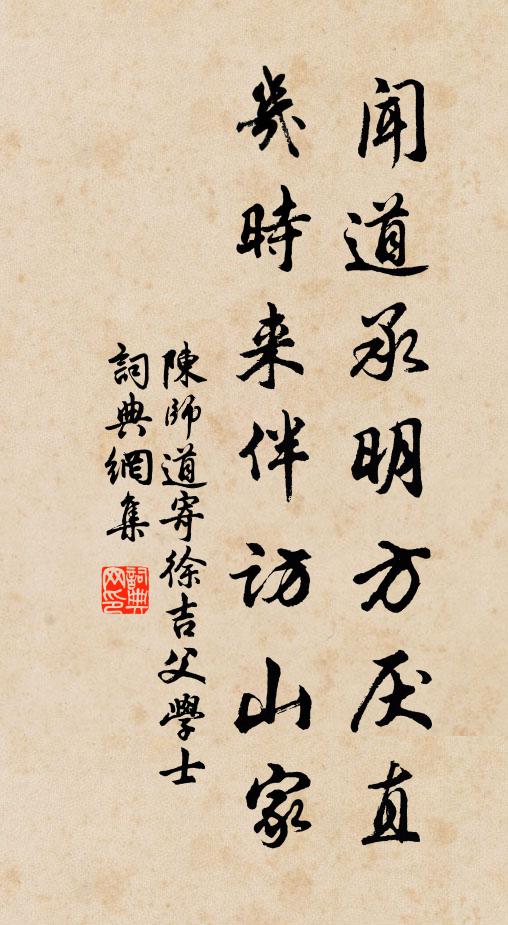 聞道承明方厌直
幾時来伴访山家
陳師道寄徐吉父學士
詞典網集
詞典网印